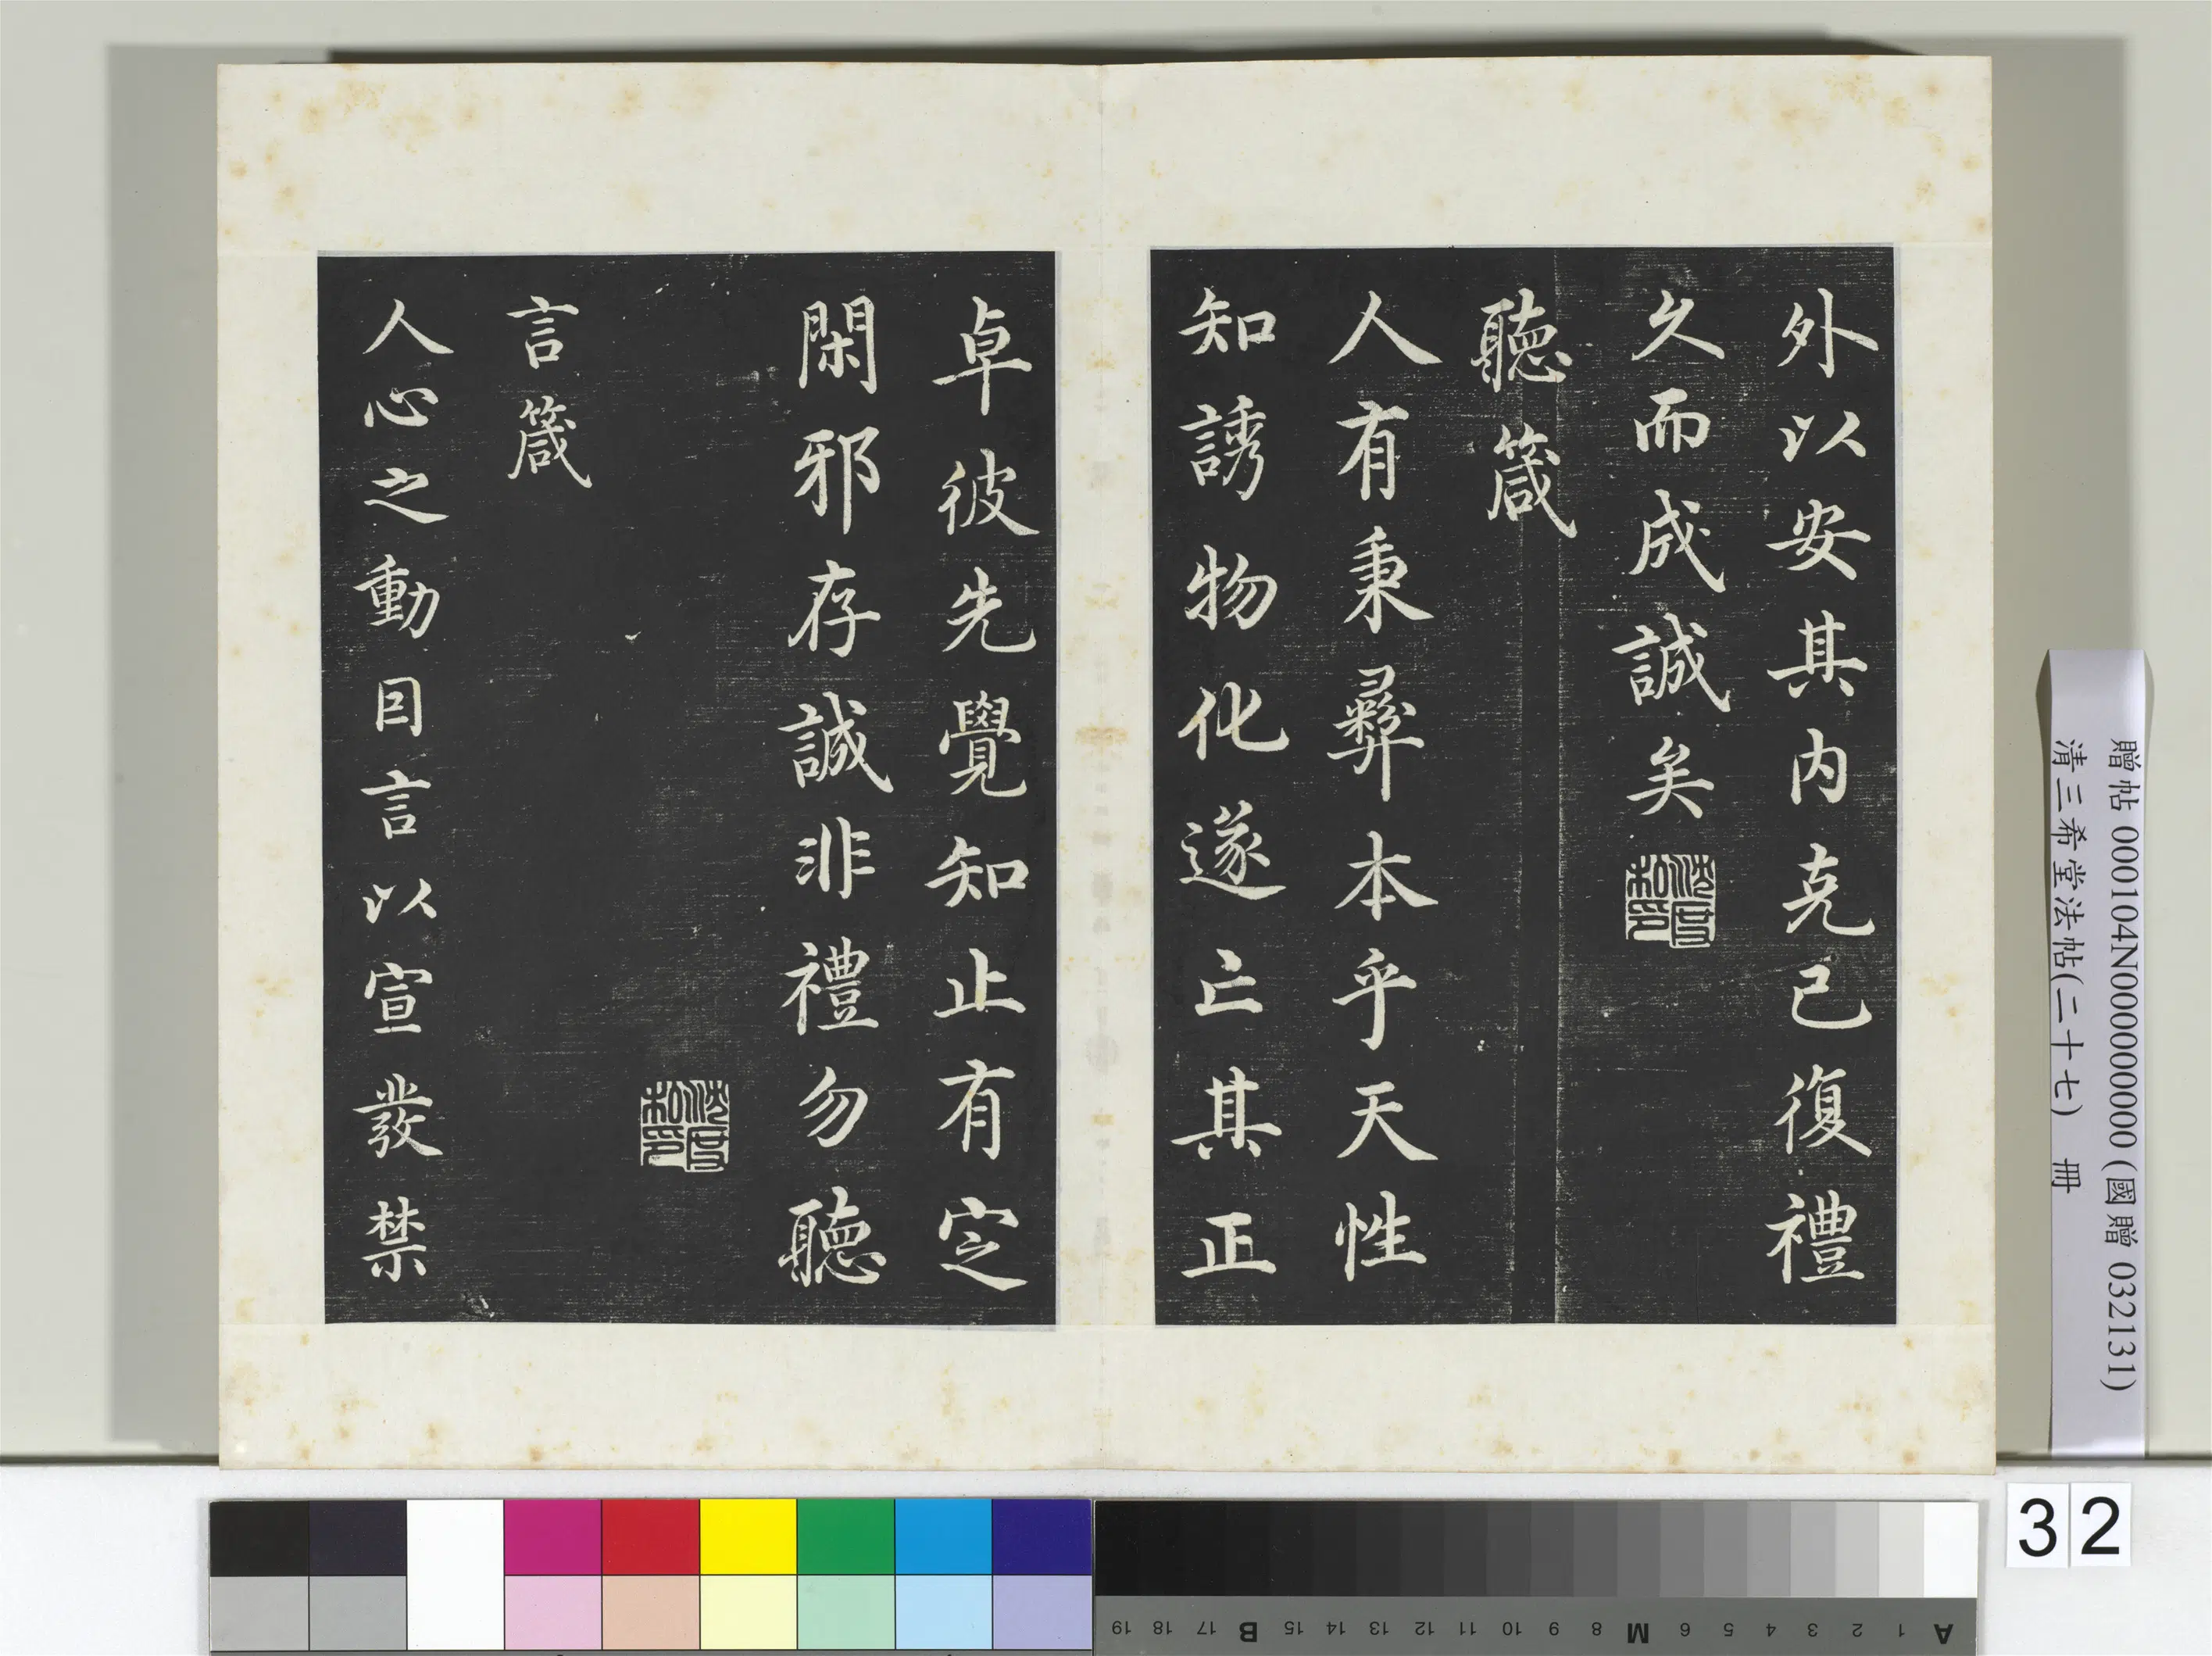 外以安其内克己復禮
久而成誠矣
聽箴
人有秉彝本乎天性
知誘物化遂亡其正
卓彼先覺知止有定
閑邪存誠非禮勿聽
言箴
人心之動因言以宣發禁
贈帖 000104N000000000 (國贈 032131)
清三希堂法帖(二十七) 冊
32
A 1 2 3 4 5 6 M 8 9 10 11 12 13 14 15 B 17 18 19